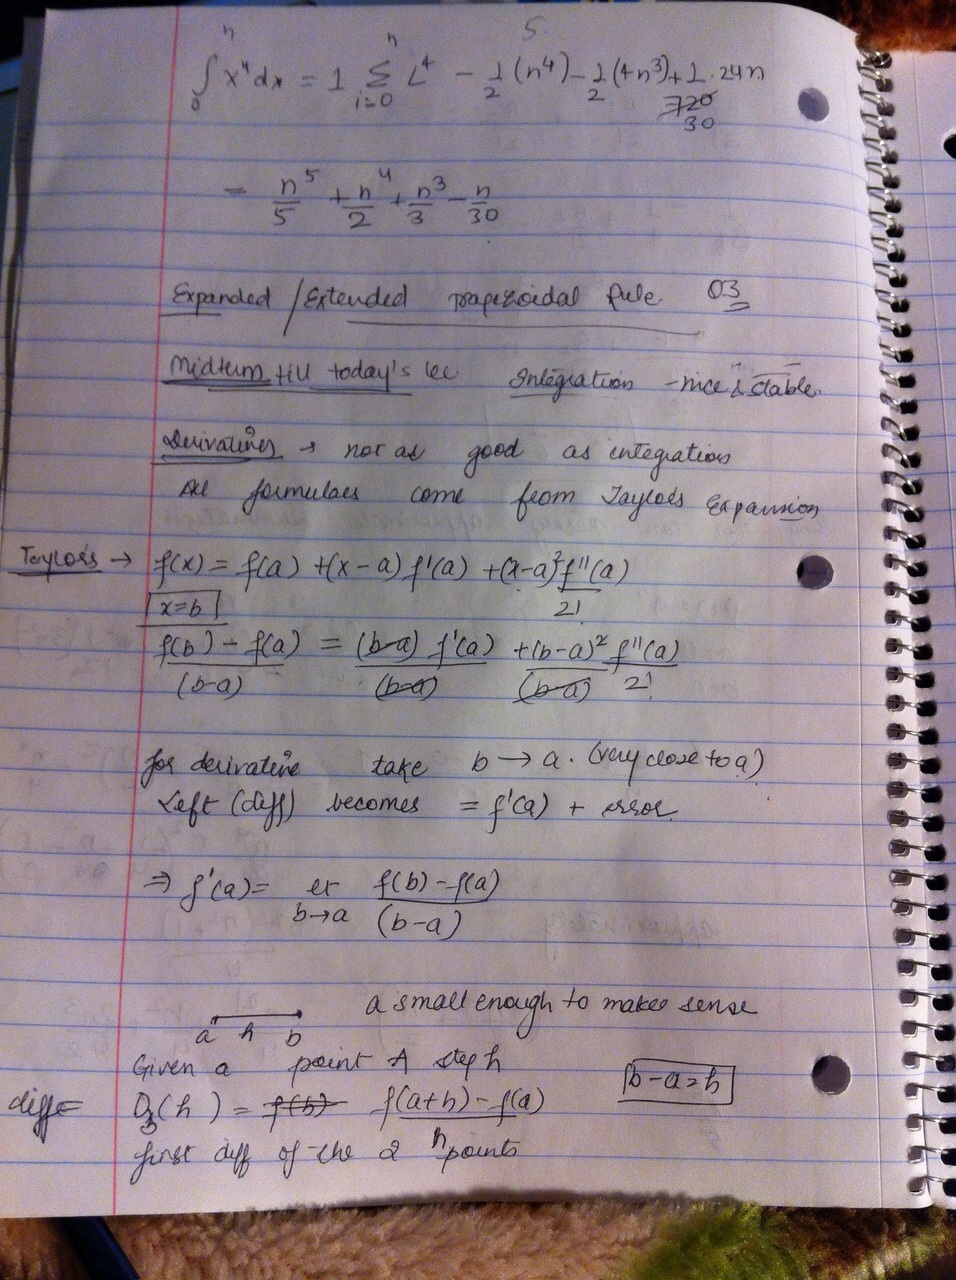 5
∫₀ⁿ x⁴dx = 1 Σᵢ₌₀ⁿ i⁴ - 1/2 (n⁴) - 1/2 (4n³) + 1/30 · 24n
= n⁵/5 + n⁴/2 + n³/3 - n/30
Expanded / Extended trapezoidal Rule 03
Midterm till today's lec Integration - nice & stable.
Derivatives → not as good as integration
All formulaes come from Taylor's Expansion
Taylor's → f(x) = f(a) + (x-a) f'(a) + (x-a)² f''(a)/2!
x=b
f(b) - f(a)/(b-a) = (b-a) f'(a)/(b-a) + (b-a)² f''(a)/(b-a) 2!
for derivative take b → a. (very close to a)
Left (diff) becomes = f'(a) + error
⇒ f'(a) = lt b→a f(b) - f(a)/(b-a)
a small enough to make sense
a h b
Given a point A step h
b-a=h
diff = D(h) = f(b) f(a+h) - f(a)/h
first diff of the 2 points